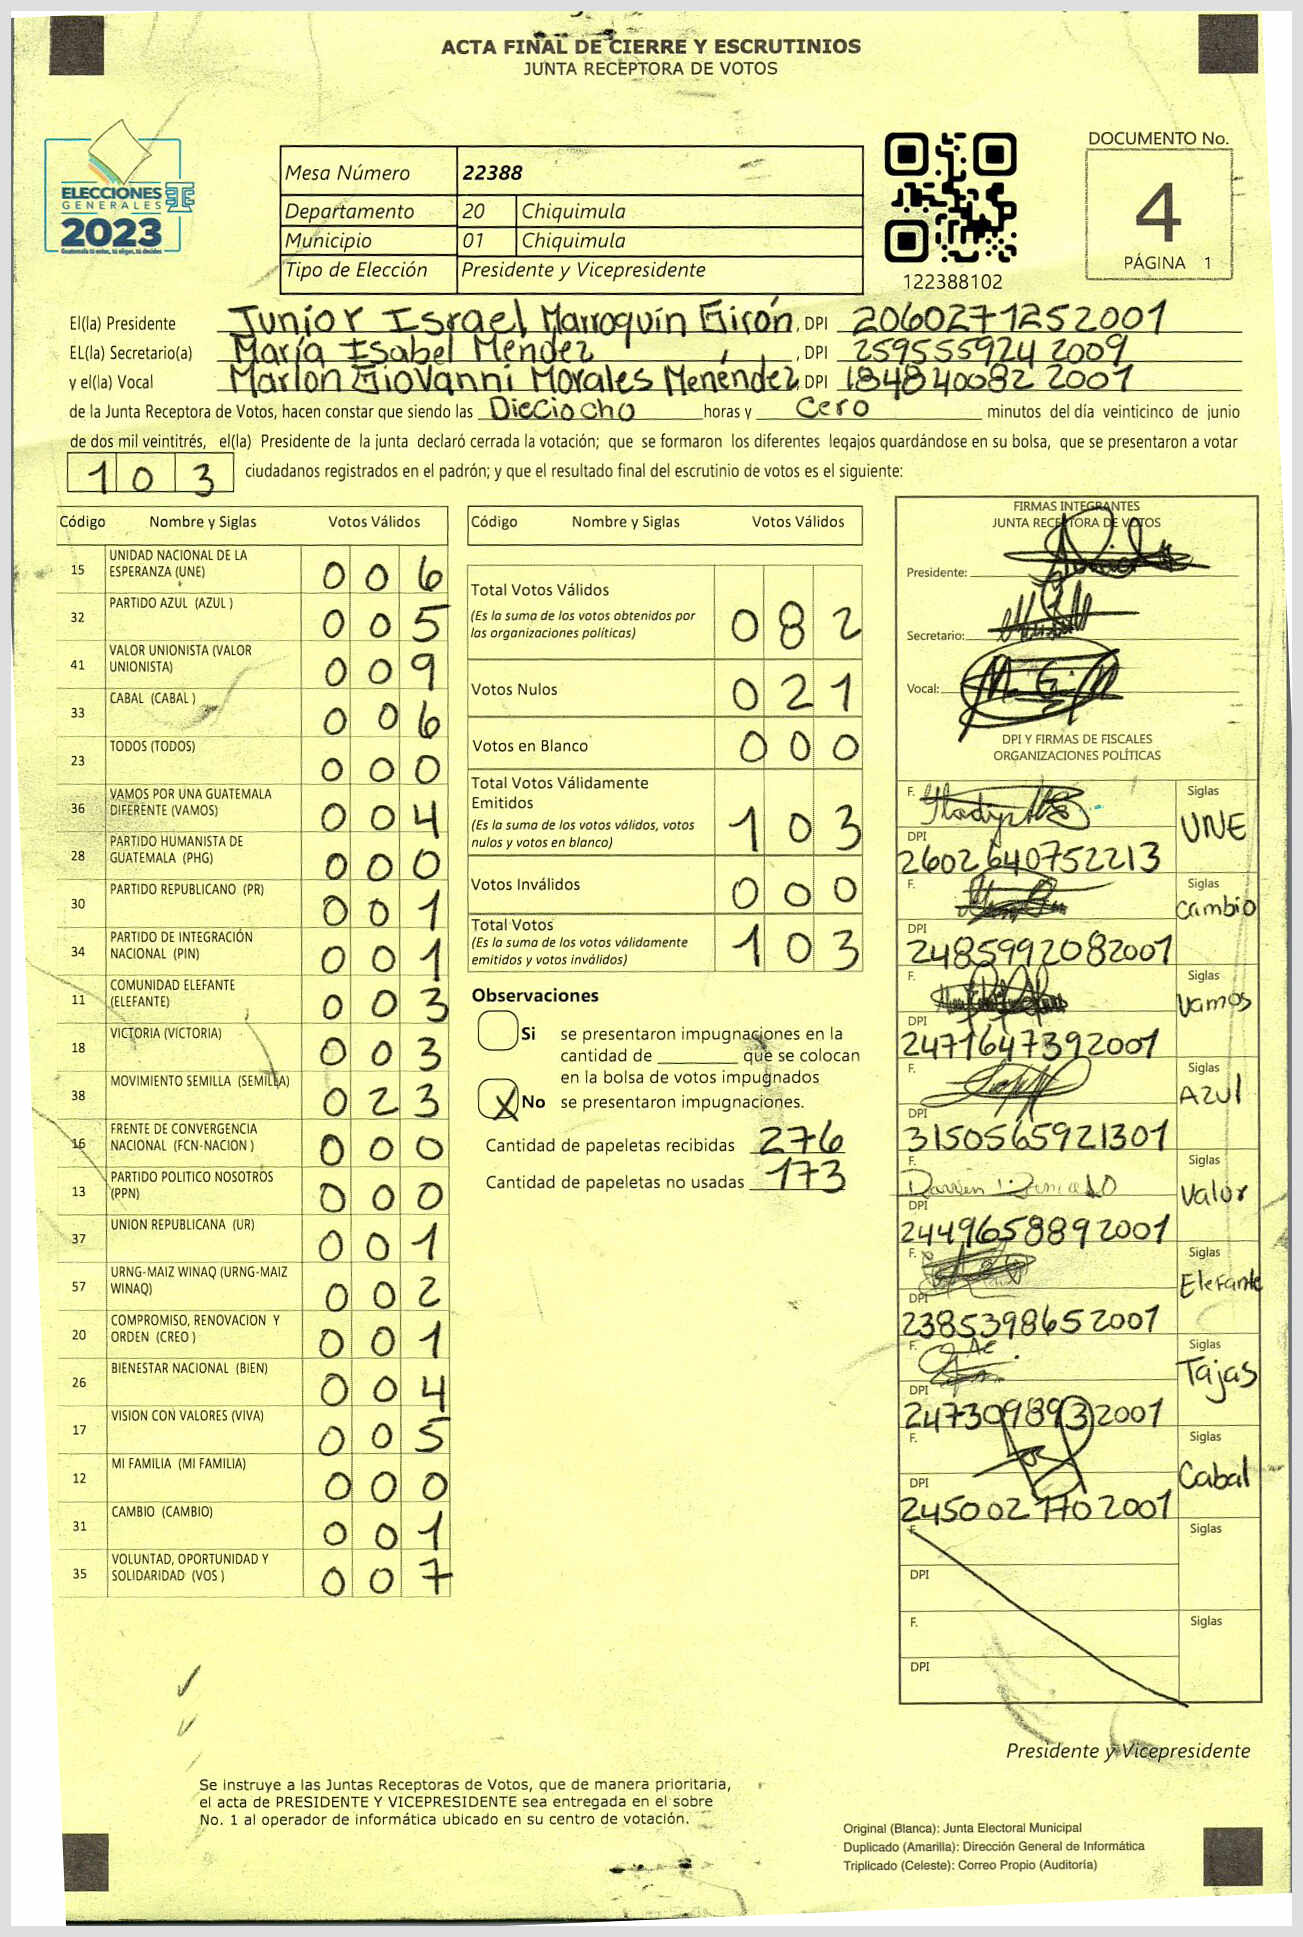 ACTA FINAL DE CIERRE Y ESCRUTINIOS
JUNTA RECEPTORA DE VOTOS
ELECCIONES
GENERALES
2023
Mesa Número 22388
Departamento 20 Chiquimula
Municipio 01 Chiquimula
Tipo de Elección Presidente y Vicepresidente
122388102
DOCUMENTO No.
4
PÁGINA 1
El(la) Presidente Junior Israel Marroquín Girón, DPI 2060271252001
EL(la) Secretario(a) María Isabel Méndez, DPI 259555924 2009
y el(la) Vocal Marlon Giovanni Morales Menéndez, DPI 184840082 2001
de la Junta Receptora de Votos, hacen constar que siendo las Dieciocho horas y Cero minutos del día veinticinco de junio
de dos mil veintitrés, el(la) Presidente de la junta declaró cerrada la votación; que se formaron los diferentes legajos quardándose en su bolsa, que se presentaron a votar
103 ciudadanos registrados en el padrón; y que el resultado final del escrutinio de votos es el siguiente:
Código Nombre y Siglas Votos Válidos
15 UNIDAD NACIONAL DE LA ESPERANZA (UNE) 006
32 PARTIDO AZUL (AZUL ) 005
41 VALOR UNIONISTA (VALOR UNIONISTA) 009
33 CABAL (CABAL ) 006
23 TODOS (TODOS) 000
36 VAMOS POR UNA GUATEMALA DIFERENTE (VAMOS) 004
28 PARTIDO HUMANISTA DE GUATEMALA (PHG) 000
30 PARTIDO REPUBLICANO (PR) 001
34 PARTIDO DE INTEGRACIÓN NACIONAL (PIN) 001
11 COMUNIDAD ELEFANTE (ELEFANTE) 003
18 VICTORIA (VICTORIA) 003
38 MOVIMIENTO SEMILLA (SEMILLA) 023
16 FRENTE DE CONVERGENCIA NACIONAL (FCN-NACION ) 000
13 PARTIDO POLITICO NOSOTROS (PPN) 000
37 UNION REPUBLICANA (UR) 001
57 URNG-MAIZ WINAQ (URNG-MAIZ WINAQ) 002
20 COMPROMISO, RENOVACION Y ORDEN (CREO ) 001
26 BIENESTAR NACIONAL (BIEN) 004
17 VISION CON VALORES (VIVA) 005
12 MI FAMILIA (MI FAMILIA) 000
31 CAMBIO (CAMBIO) 001
35 VOLUNTAD, OPORTUNIDAD Y SOLIDARIDAD (VOS ) 007
Código Nombre y Siglas Votos Válidos
Total Votos Válidos 082
(Es la suma de los votos obtenidos por
las organizaciones políticas)
Votos Nulos 021
Votos en Blanco 000
Total Votos Válidamente
Emitidos 103
(Es la suma de los votos válidos, votos
nulos y votos en blanco)
Votos Inválidos 000
Total Votos 103
(Es la suma de los votos válidamente
emitidos y votos inválidos)
Observaciones
Si se presentaron impugnaciones en la
cantidad de ________ que se colocan
en la bolsa de votos impugnados
X No se presentaron impugnaciones.
Cantidad de papeletas recibidas 276
Cantidad de papeletas no usadas 173
FIRMAS INTEGRANTES
JUNTA RECEPTORA DE VOTOS
Presidente:
Secretario:
Vocal:
DPI Y FIRMAS DE FISCALES
ORGANIZACIONES POLÍTICAS
F. Siglas UNE
DPI 2602640752213
F. Siglas Cambio
DPI 2485992082001
F. Siglas Vamos
DPI 2471647392001
F. Siglas AZUl
DPI 3150565921301
F. Siglas Valor
DPI 2449658892001
F. Siglas Elefante
DPI 2385398652001
F. Siglas Tajas
DPI 2473098932001
F. Siglas Cabal
DPI 2450021702001
F. Siglas
DPI
F. Siglas
DPI
Presidente y Vicepresidente
Se instruye a las Juntas Receptoras de Votos, que de manera prioritaria,
el acta de PRESIDENTE Y VICEPRESIDENTE sea entregada en el sobre
No. 1 al operador de informática ubicado en su centro de votación.
Original (Blanca): Junta Electoral Municipal
Duplicado (Amarilla): Dirección General de Informática
Triplicado (Celeste): Correo Propio (Auditoría)